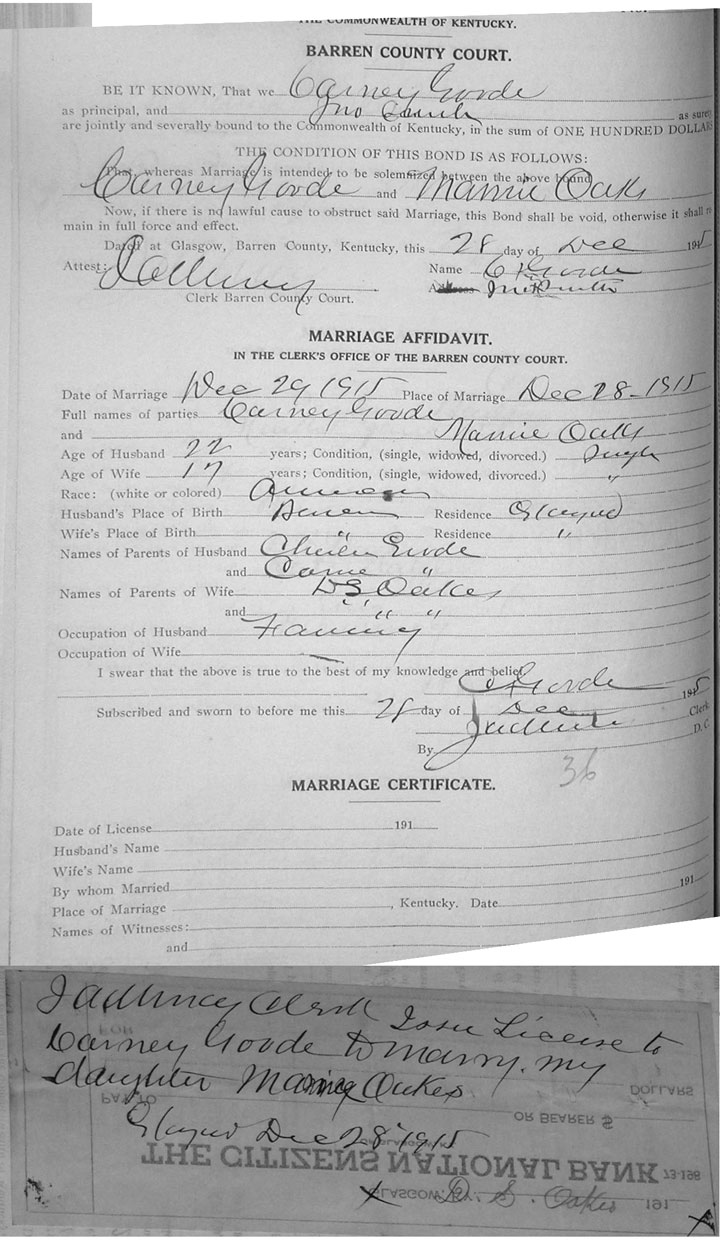 THE COMMONWEALTH OF KENTUCKY.
BARREN COUNTY COURT.
BE IT KNOWN, That we Carney Goode
as principal, and Jno Smith as surety
are jointly and severally bound to the Commonwealth of Kentucky, in the sum of ONE HUNDRED DOLLARS
THE CONDITION OF THIS BOND IS AS FOLLOWS:
That, whereas Marriage is intended to be solemnized between the above bound
Carney Goode and Mannie Oaks
Now, if there is no lawful cause to obstruct said Marriage, this Bond shall be void, otherwise it shall re
main in full force and effect.
Dated at Glasgow, Barren County, Kentucky, this 28 day of Dec 1915
Attest: Name C Goode
Clerk Barren County Court. Address
MARRIAGE AFFIDAVIT.
IN THE CLERK'S OFFICE OF THE BARREN COUNTY COURT.
Date of Marriage Dec 29 1915 Place of Marriage Dec 28-1915
Full names of parties Carney Goode
and Mannie Oaks
Age of Husband 22 years; Condition, (single, widowed, divorced.) Single
Age of Wife 17 years; Condition, (single, widowed, divorced.) "
Race: (white or colored)
Husband's Place of Birth Barren Residence Glasgow
Wife's Place of Birth " Residence "
Names of Parents of Husband Goode
and "
Names of Parents of Wife D S Oakes
and " " "
Occupation of Husband Farming
Occupation of Wife
I swear that the above is true to the best of my knowledge and belief
C Goode
1915
Subscribed and sworn to before me this 28 day of Dec Clerk
By D. C.
36
MARRIAGE CERTIFICATE.
Date of License 191
Husband's Name
Wife's Name
By whom Married
Place of Marriage , Kentucky. Date 191
Names of Witnesses:
and
Clerk Issue License to
Carney Goode to marry my
daughter Oakes
DOLLARS
PAY TO OR BEARER $
Glasgow Dec 28 1915
THE CITIZENS NATIONAL BANK 73-198
X GLASGOW, KY. D. S. Oakes 191 X